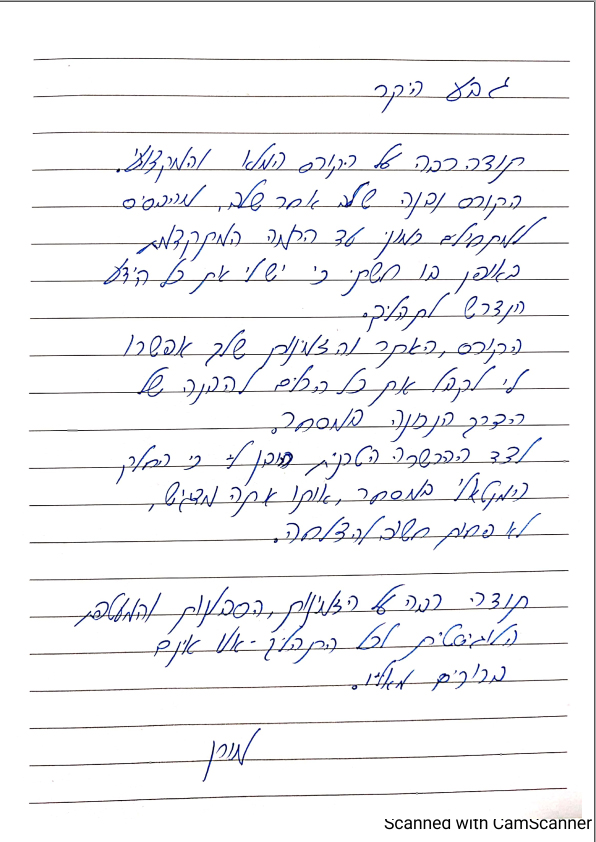 גבע היקר
תודה רבה על הקורס המלא והמקצועי.
הקורס נבנה שלב אחר שלב, מהבסיס
למתחילים כמוני עד הרמה המתקדמת
באופן בו חשתי כי יש לי את כל הידע
הנדרש לתהליך.
הקורס, האתר והזמינות שלך אפשרו
לי לקבל את כל הכלים להבנה של
הדרך הנכונה במסחר.
לצד ההכשרה הטכנית הובן לי כי החלק
המנטאלי במסחר, אותו אתה מדגיש,
לא פחות חשוב להצלחה.
תודה רבה על הזמינות, הסבלנות והמעטפת
הלוגיסטית לכל התהליך - אלו אינם
ברורים מאליו.
מורן
Scanned with CamScanner